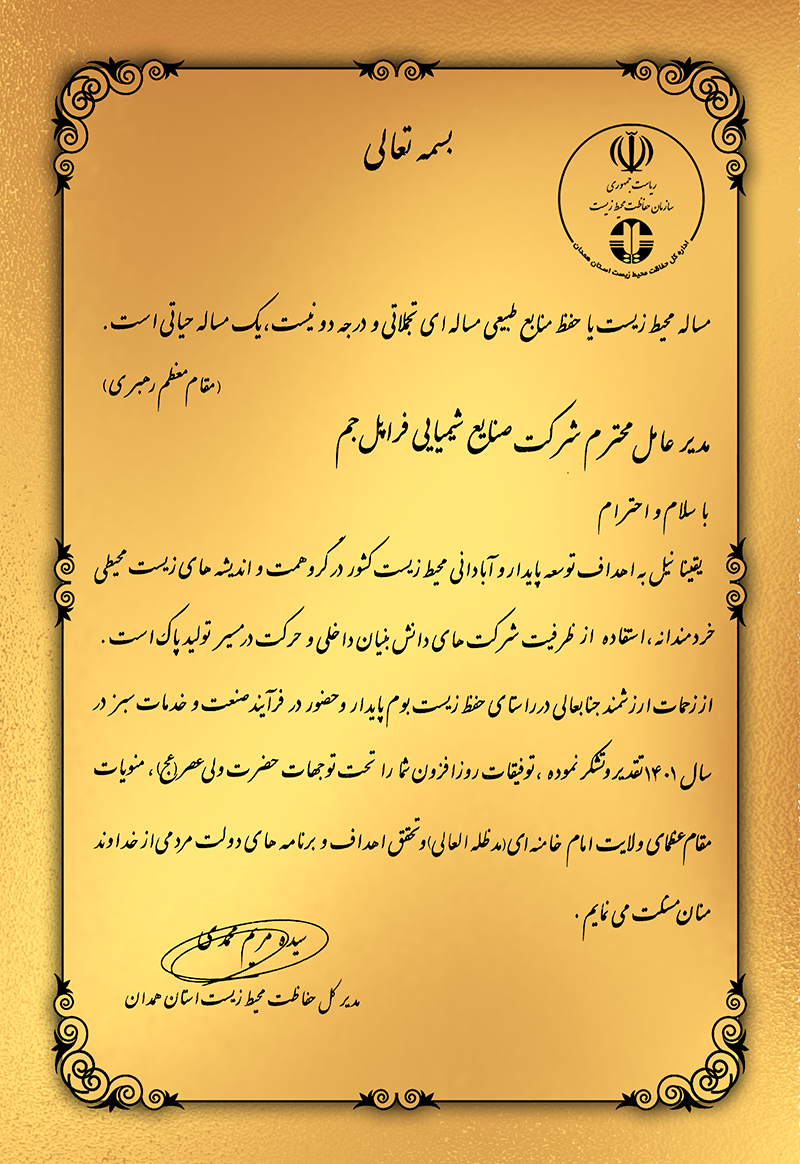 بسمه تعالی
ریاست جمهوری
سازمان حفاظت محیط زیست
اداره کل حفاظت محیط زیست استان همدان
مساله محیط زیست یا حفظ منابع طبیعی مساله ای تجملاتی و درجه دو نیست، یک مساله حیاتی است.
(مقام معظم رهبری)
مدیر عامل محترم شرکت صنایع شیمیایی فراپل جم
با سلام و احترام
یقینا نیل به اهداف توسعه پایدار و آبادانی محیط زیست کشور در گرو همت و اندیشه های زیست محیطی
خردمندانه، استفاده از ظرفیت شرکت های دانش بنیان داخلی و حرکت در مسیر تولید پاک است.
از زحمات ارزشمند جنابعالی در راستای حفظ زیست بوم پایدار وحضور در فرآیند صنعت و خدمات سبز در
سال ۱۴۰۱ تقدیر و تشکر نموده، توفیقات روز افزون شما را تحت توجهات حضرت ولی عصر(عج)، منویات
مقام عظمای ولایت امام خامنه ای(مدظله العالی)و تحقق اهداف و برنامه های دولت مردمی از خداوند
منان مسئلت می نمایم.
سیده مریم محمدی
مدیر کل حفاظت محیط زیست استان همدان